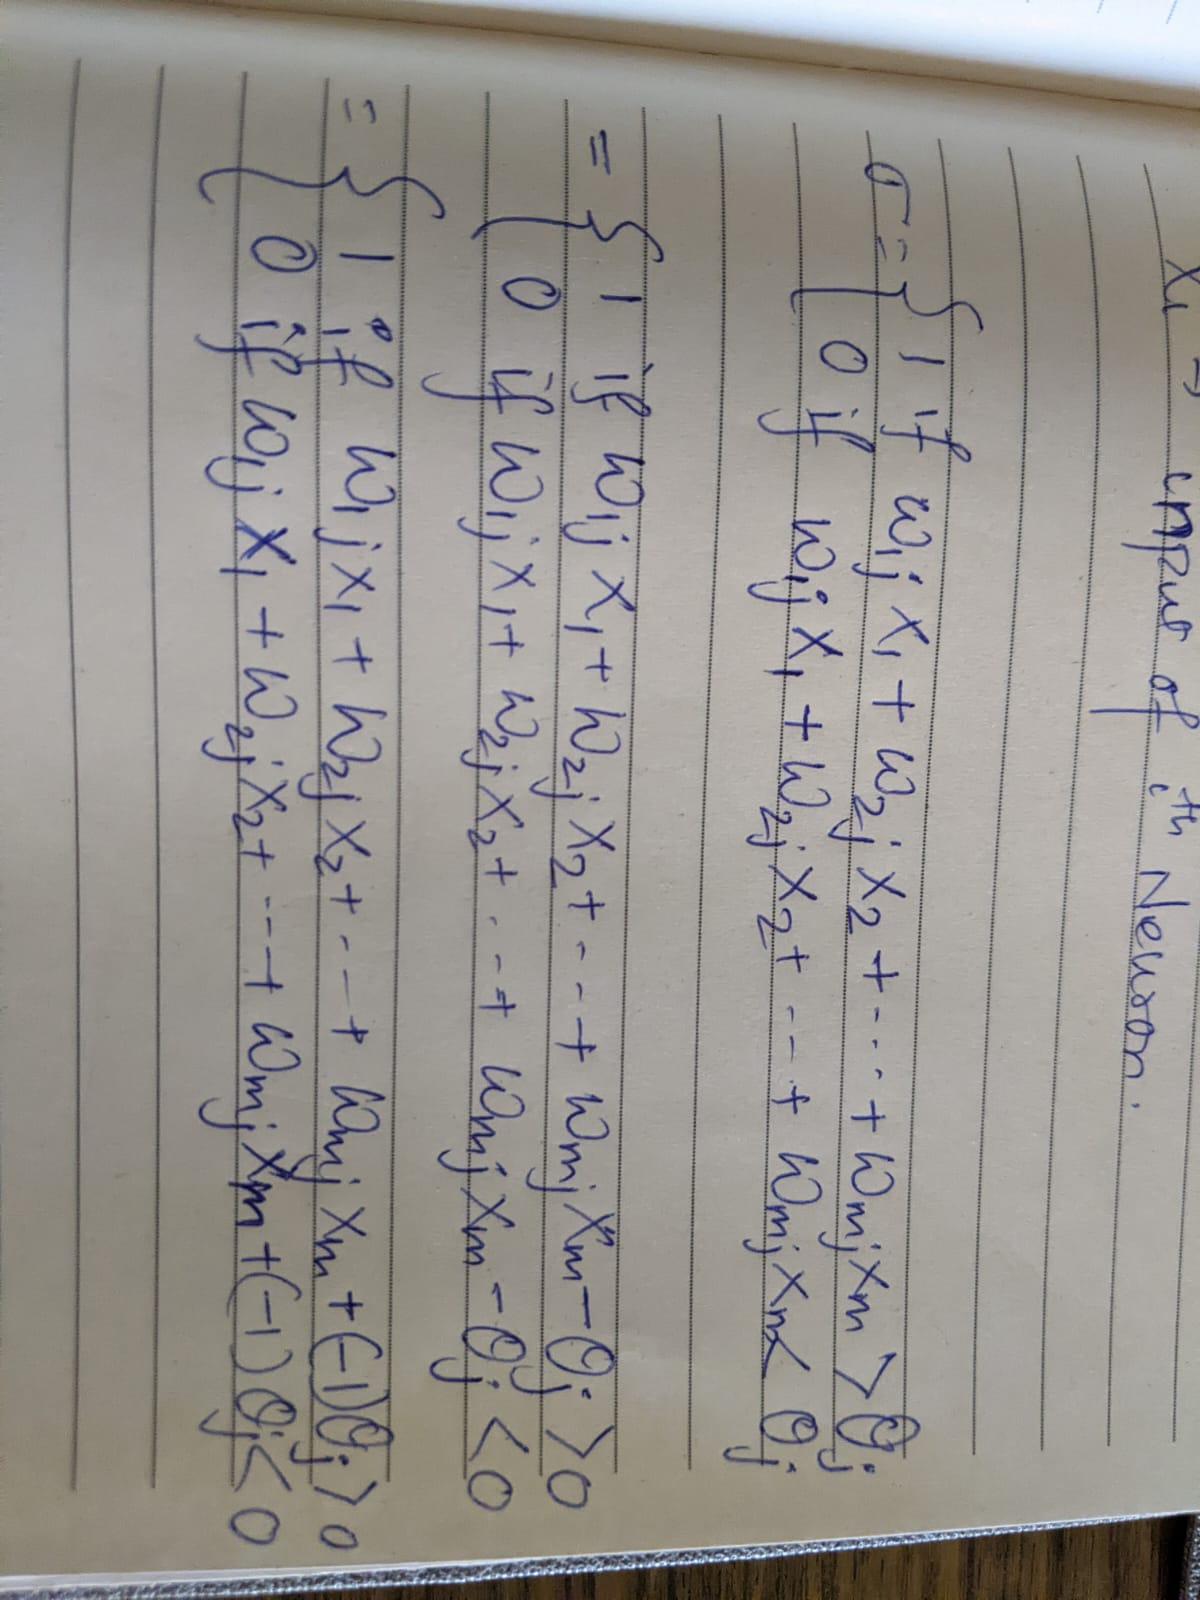 x₁ → input of iᵗʰ Neuron.
σ = { 1 if w₁ⱼ x₁ + w₂ⱼ x₂ + ... + wₘⱼ xₘ > θⱼ
0 if w₁ⱼ x₁ + w₂ⱼ x₂ + --- + wₘⱼ xₘ < θⱼ
= { 1 if w₁ⱼ x₁ + w₂ⱼ x₂ + --- + wₘⱼ xₘ - θⱼ > 0
0 if w₁ⱼ x₁ + w₂ⱼ x₂ + --- + wₘⱼ xₘ - θⱼ < 0
= { 1 if w₁ⱼ x₁ + w₂ⱼ x₂ + --- + wₘⱼ xₘ + (-1)θⱼ > 0
0 if w₁ⱼ x₁ + w₂ⱼ x₂ + --- + wₘⱼ xₘ + (-1) θⱼ < 0